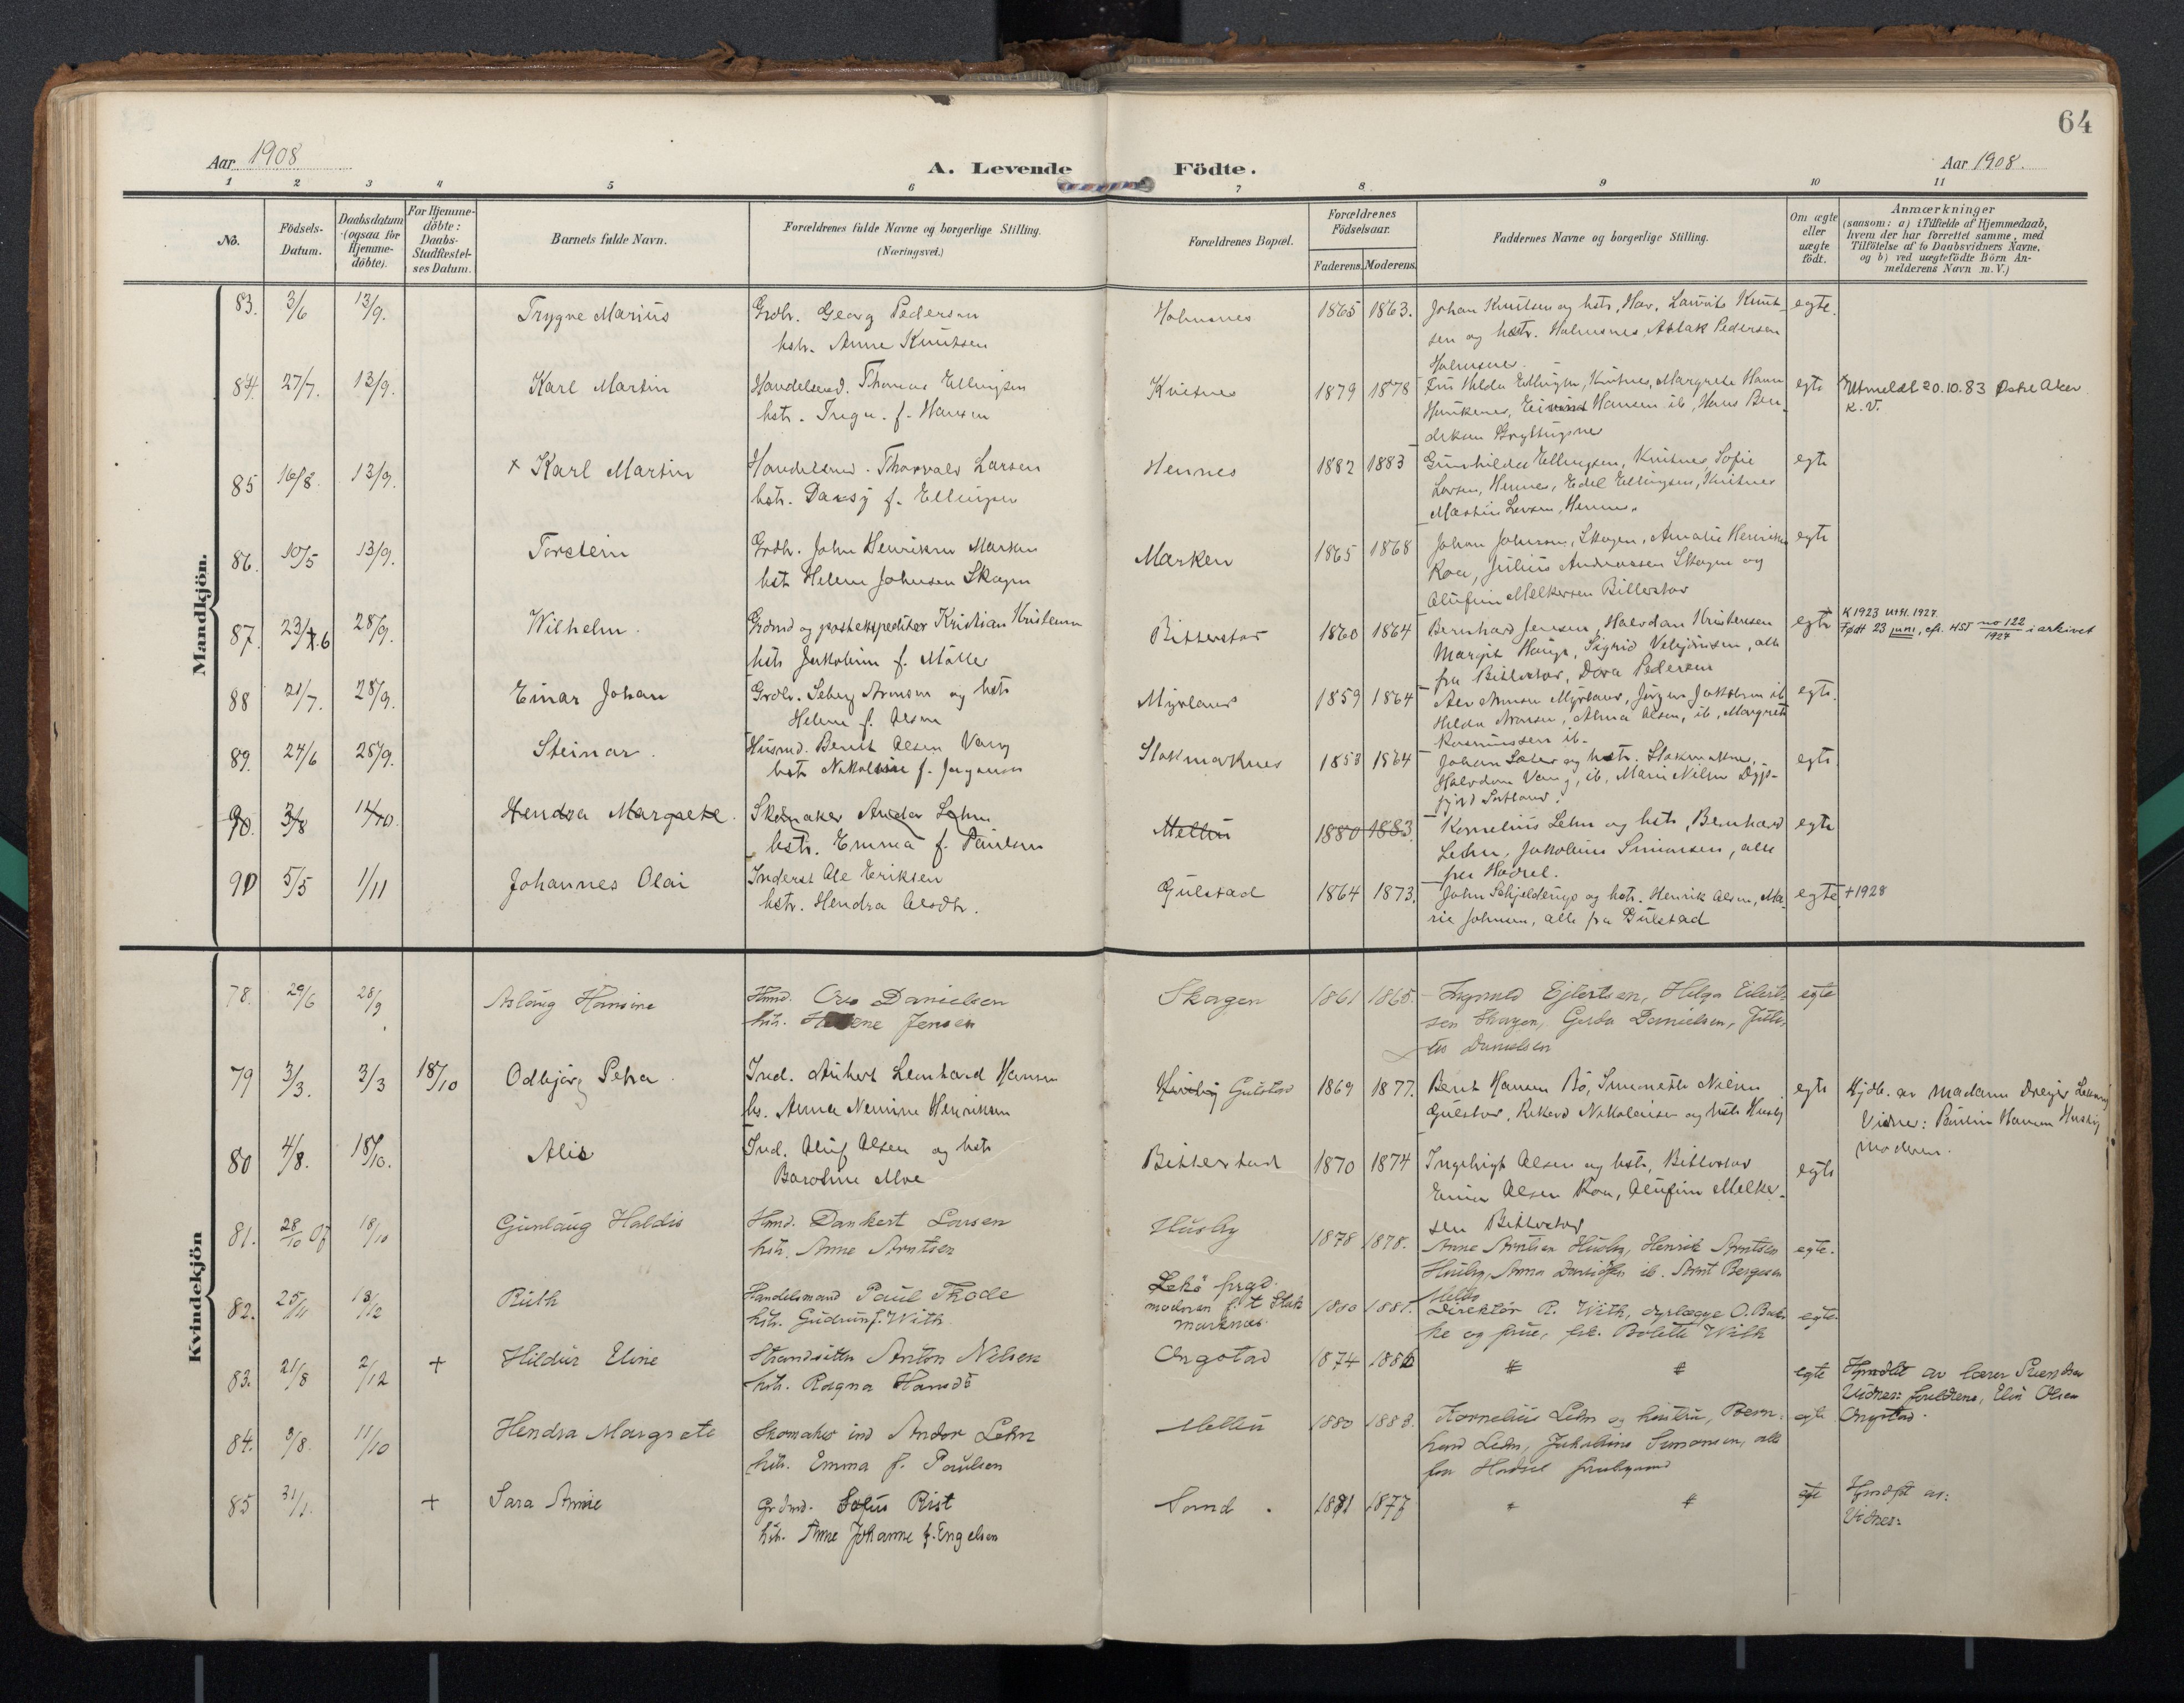 64
Aar 1908
A. Levende Födte.
Aar 1908.
1 2 3 4 5 6 7 8 9 10 11
No.
Födsels-
Datum.
Daabsdatum
(ogsaa for
Hjemme-
döbte).
For Hjemme-
döbte:
Daabs-
Stadfæstel-
ses Datum.
Barnets fulde Navn.
Forældrenes fulde Navne og borgerlige Stilling.
(Næringsvei.)
Forældrenes Bopæl.
Forældrenes
Födselsaar.
Faderens. Moderens.
Faddernes Navne og borgerlige Stilling.
Om ægte
eller
uægte
födt.
Anmærkninger
(saasom: a) i Tilfælde af Hjemmedaab,
hvem der har forrettet samme, med
Tilföielse af to Daabsvidners Navne,
og b) ved uægtefödte Börn An-
melderens Navn m. V.)
Mandkjön.
83. 3/6 13/9. Trygve Marius Grdbr. Georg Pedersen Holmsnes 1865 1863. Johan Knutsen og hstr, Hav. Laurits Knut- egte.
hstr. Anne Knutsen sen og hstr. Holmsnes, Aslak Pedersen
Holmsnes.
84. 27/7. 13/9. Karl Martin Handelsmd. Thomas Ellingsen Kvitnes 1879 1878 Fru Hilda Ellingsen, Kvitnes, Margrete egte Utmeldt 20.10.83 Østre Aker
hstr. f. Hansen Hansen ib, Hans Ben- K.V.
diksen
85 16/8. 13/9. x Karl Martin Handelsmd. Thorvald Larsen Hennes 1882 1883 Gunhilda Ellingsen, Kvitnes, Sofie egte
hstr. Dagsy f. Ellingsen Larsen, Hennes, Edel Ellingsen, Kvitnes
Martin Larsen, Hennes.
86. 10/5 13/9. Torstein Grdbr. John Henriksen Marken Marken 1865 1868 Johan Johnsen, Skagen, Amalie Henriksen egte
hstr Helene Johnsen Skagen Roa, Julius Andreassen Skagen og
Olufine Melkersen Bitterstad
87. 23/7.6 28/9. Wilhelm. Grdmd og postekspeditør Kristian Kristensen Bitterstad 1860 1864 Bernhard Jensen, Halvdan Kristensen egte K 1923 Utfl. 1927.
hstr Jakobine f. Möller Margit Hauge, Sigrid, alle Født 23 juni, cfr. HST no 122/1927 i arkivet
fra Bitterstad, Dora Pedersen
88 21/7. 28/9. Einar Johan Grdbr. Seberg Aronsen og hstr Myrland 1859 1864 Aronsen Myrland, Jörgen Jakobsen ib egte.
Helene f. Olsen Hilda Aronsen, Alma Olsen, ib, Margrete
Rasmussen ib.
89. 24/6 28/9. Steinar. Husmd. Berndt Olsen Vang Stokmarknes 1853 1864 Johan Sæter og hstr. Stokmarknes, egte
hstr Nikoline f. Jörgensen Halvdan Vang, ib, Marie Nilsen Djup-
fjord Sortland.
90. 3/8 11/10. Hendra Margrete. Skomaker Andor Lehn Melbu 1880 1883. Kornelius Lehn og hstr, Bernhard egte
hstr. Emma f. Paulsen Lehn, Jakobine Simonsen, alle
fra Hadsel.
90 5/5 1/11 Johannes Olai Inderst Ole Eriksen Gulstad 1864 1873. John Schjelderup og hstr. Henrik Olsen, Ma- egte +1928
hstr. Hendra Olsdtr. rie Johnsen, alle fra Gulstad
Kvindekjön
78. 29/6 28/9 Aslaug Hansine Hmd. Ove Danielsen Skagen 1861 1865. Ingvald Ejlertsen, Helga Eilert- egte
hstr. Helene Jensen sen Skagen, Gerda Danielsen,
Danielsen
79 3/3. 3/3 18/10 Odbjörg Petra. Ind. Ankert Leonhard Hansen Husby Gulstad 1869 1877. Berit Hansen Bö, Simonette Nilsen egte Hjdb. av Madame Dreyer
hs. Anna Nemine Henriksen Gulstad, Rikard Nikolaisen og hstr Husby Vidner: Paulin Hansen Husby
Moderen.
80 4/8. 18/10. Alis Ind. Oluf Olsen og hstr Bitterstad 1870 1874 Ingebrigt Olsen og hstr, Bitterstad egte
Baroline Moe Olsen Roa, Olufine Melker-
sen Bitterstad
81. 28/10 07 18/10 Gunlaug Haldis Hmd. Dankert Larsen Husby 1878 1878. Anne Arntsen Husby, Henrik Arntsen egte.
hstr. Anne Arntsen Husby, Anna ib. Arnt Bergesen
Melbo
82. 25/11 13/12 Ruth Handelsmand Paul Thode Lekö prgd. 1880 1881. Direktör R. With, dyrlæge O. Bak- egte
hstr. Gudrun f. With. moderen f. t Stok- ke og frue, frk. Bolette With
marknes.
83. 21/8 2/12 + Hildur Eline Strandsitter Anton Nilsen Ongstad 1874 1886 # # egte Hjmdbt av lærer
hstr. Ragna Hansd. Vidner: foreldrene, Elin Olsen
Ongstad.
84. 3/8. 11/10 Hendra Margrete Skomaker ind Andor Lehn Melbu 1880 1883. Kornelius Lehn og hustru, Bern- egte
hstr. Emma f. Paulsen hard Lehn, Jakobine Simonsen, alle
fra Hadsel
85 31/1. + Sara Amie Grdmd. Sofus Rist Sand. 1881 1877 # # egte Hjmdbt av:
hstr. Anne Johanne f. Engelsen Vidner: